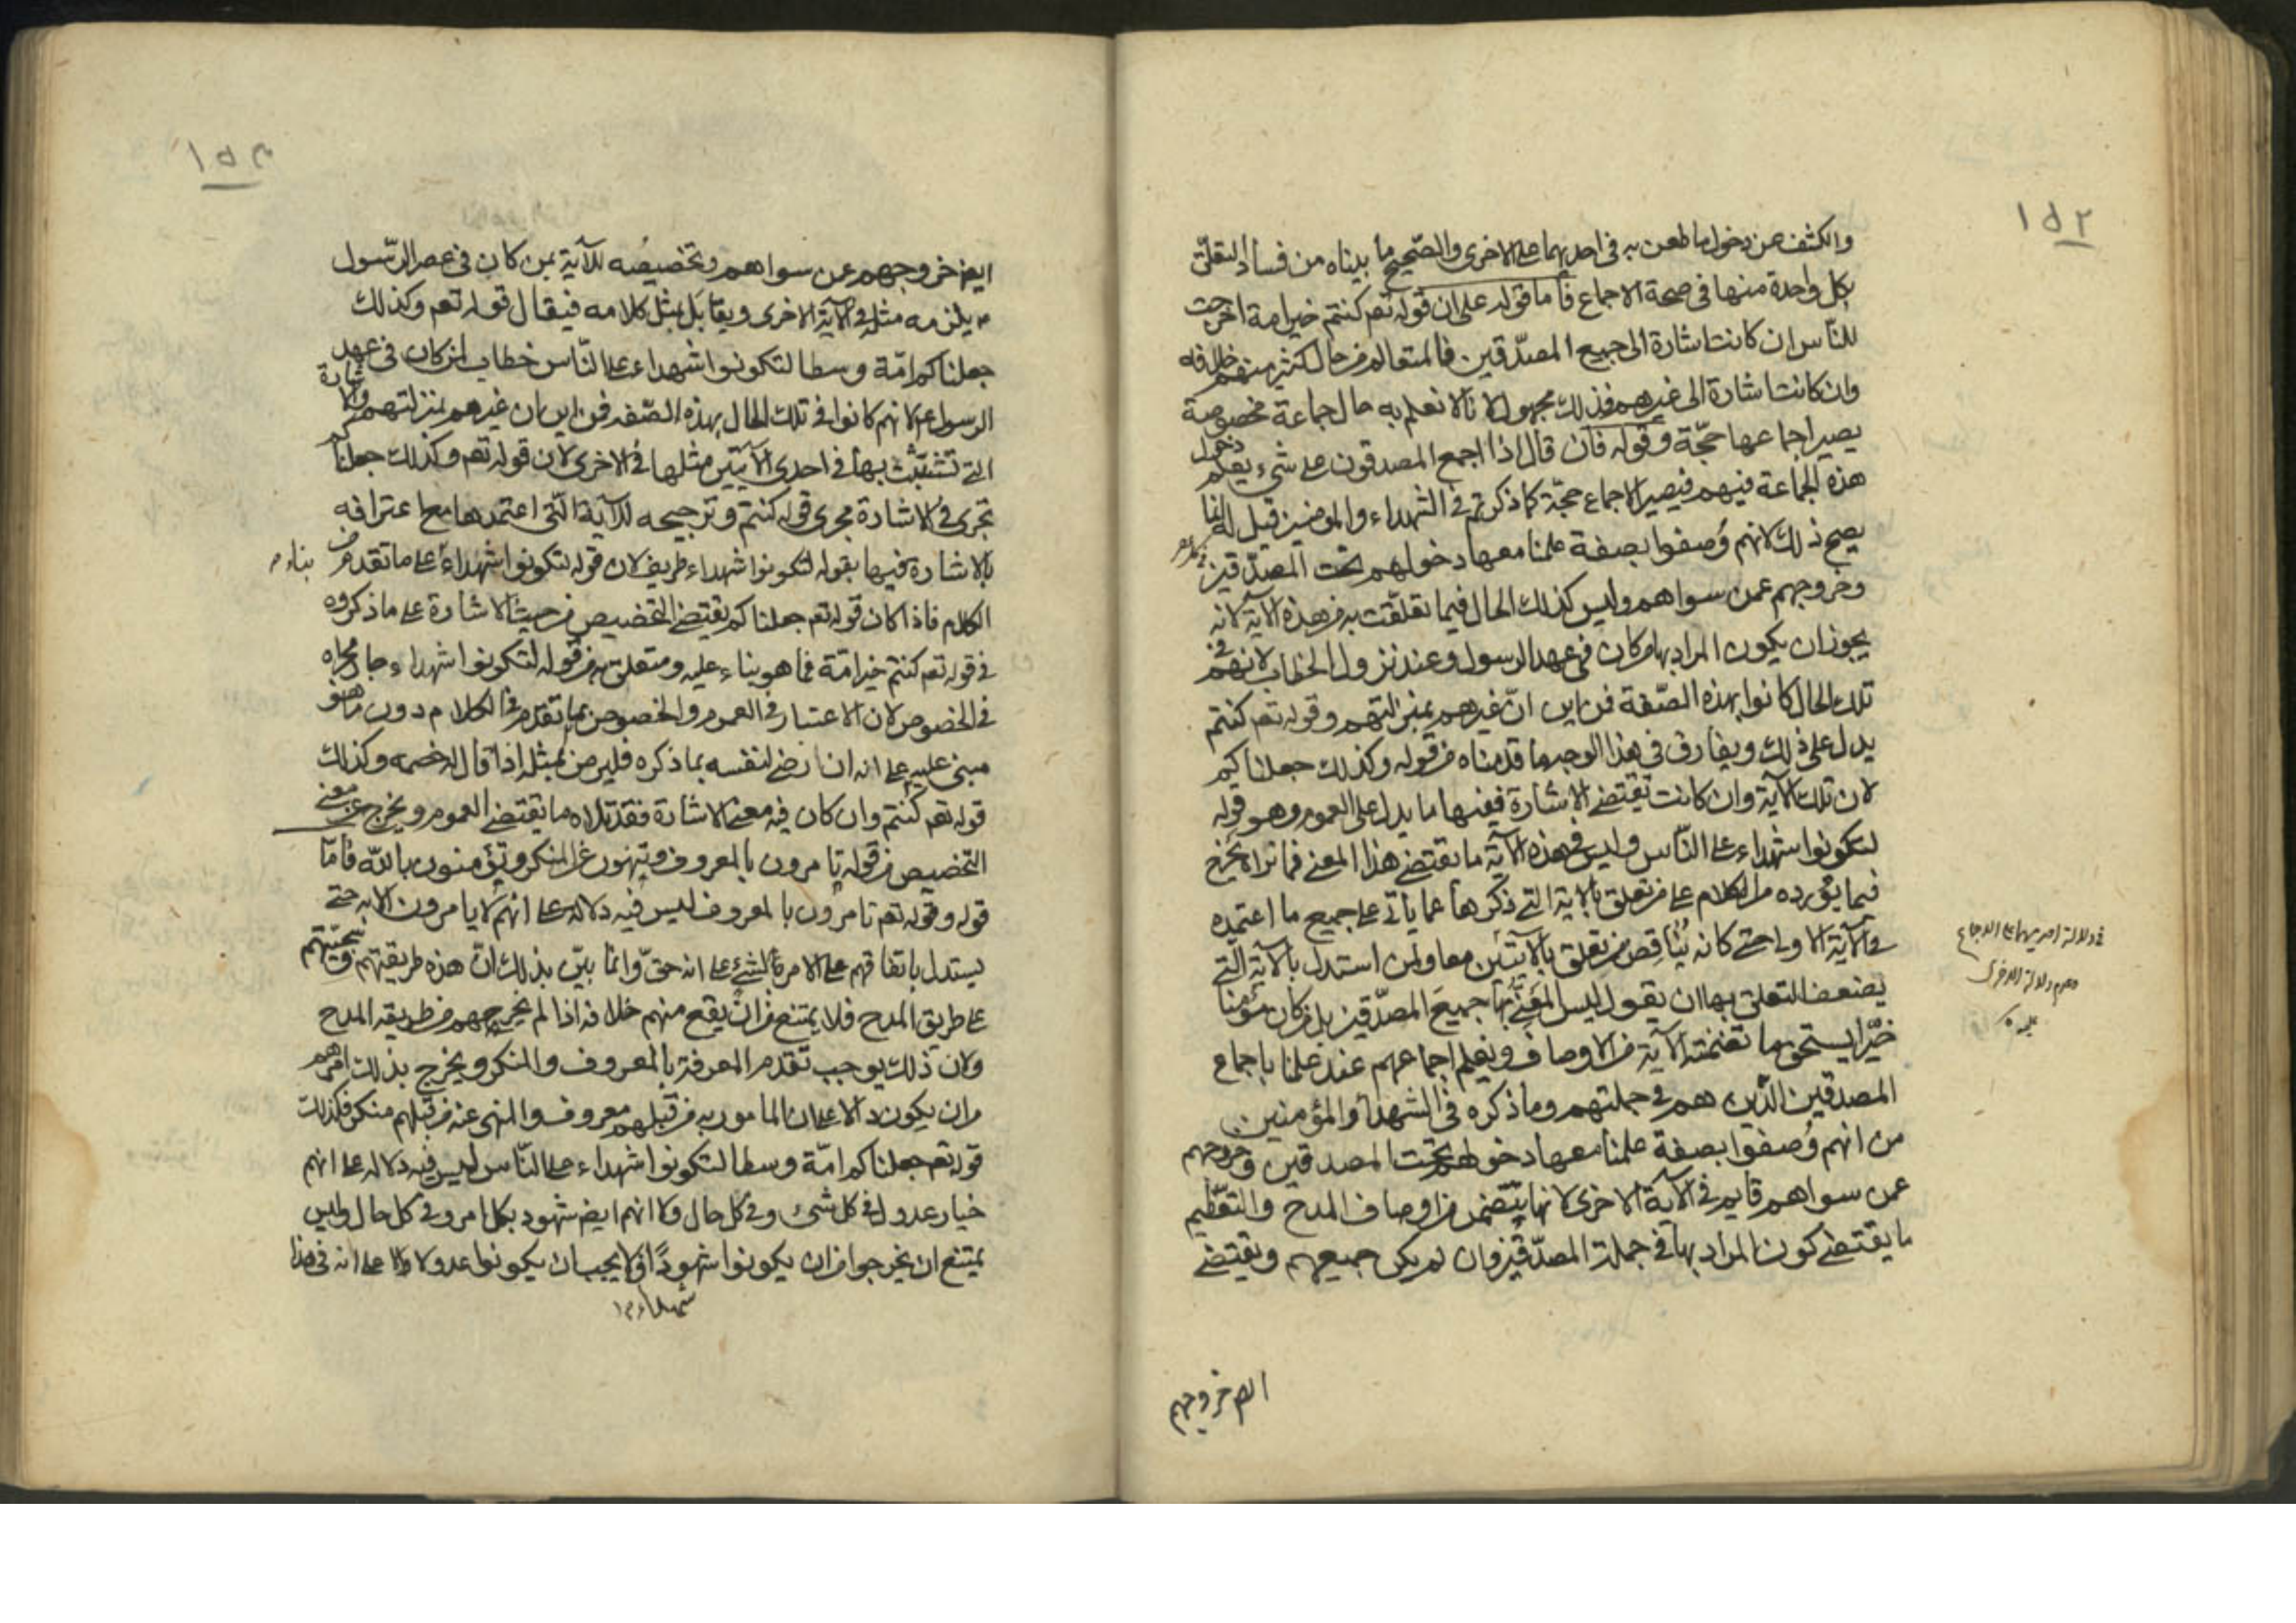 ١٥٢
والكشف عن دخول ما طعن به في احديهما على الاخرى والصحيح ما بيناه من فساد التعلق
بكل واحدة منها في صحة الاجماع فاما قوله على ان قوله تعم كنتم خير امة اخرجت
للناس ان كانت اشارة الى جميع المصدقين فالمتعالم من حال كثير منهم خلافه
وان كانت اشارة الى غيرهم فذلك مجهول لانا لا نعلم به حال جماعة مخصوصة
يصير اجماعها حجة وقوله فان قال اذا اجمع المصدقون على شيء يعلم دخول
هذه الجماعة فيهم فيصير الاجماع حجة كما ذكرتم في الشهداء والمؤمنين قيل له انما
يصح ذلك لانهم وُصفوا بصفة علمنا معها دخولهم تحت المصدقين
وخروجهم عمن سواهم وليس كذلك الحال فيما تعلقت به من هذه الآية لانه
يجوز ان يكون المراد بها من كان في عهد الرسول وعند نزول الخطاب لانهم في
تلك الحال كانوا بهذه الصّفة فمن اين انّ غيرهم بمنزلتهم وقوله تعم كنتم
يدل على ذلك ويفارق في هذا الوجه ما قدمناه من قوله وكذلك جعلناكم
لان تلك الآية وان كانت تقتضي الاشارة ففيها ما يدل على العموم وهو قوله
لتكونوا شهداء على النّاس وليس في هذه الآية ما يقتضي هذا المعنى فما نراه يخرج
فيما يورده من الكلام على من تعلق بالاية التي ذكرها عما ياتي على جميع ما اعتمده
في الآية الاولى حتى كانه يُناقض من تعلق بالآيتين معا ولمن استدل بالآية التي
يضعف التعلق بها ان يقول ليس المعنيّ بها جميعَ المصدّقين بل من كان مؤمنا
خيّرا يستحق ما تضمنته الآية من الاوصاف ونعلم اجماعهم عند علمنا باجماع
المصدقين الذين هم في جملتهم وما ذكره في الشهداء والمؤمنين
من انهم وُصفوا بصفة علمنا معها دخولهم تحت المصدقين وخروجهم
عمن سواهم قايم في الآية الاخرى لانها تتضمن من اوصاف المدح والتعظيم
ما يقتضي كون المراد بها في جملة المصدّقين وان لم يكن جميعهم ويقتضي
في دلالة احديهما على الاجماع
وعدم دلالة الاخرى
عليه
ايض خروجهم
١٥٣
ايض خروجهم عن سواهم وتخصيصُه للآية بمن كان في عصر الرّسول
يلزمه مثله في الآية الاخرى ويقابَل بمثل كلامه فيقال قوله تعم وكذلك
جعلناكم امّة وسطا لتكونوا شهداء على النّاس خطاب لمن كان في عهد
الرسول لانهم كانوا في تلك الحال بهذه الصّفه فمن اين ان غيرهم بمنزلتهم والاشارة
التي تشبّث بها في احدى الآيتين مثلها في الاخرى لان قوله تعم وكذلك جعلناكم
تجري في الاشارة مجرى قوله كنتم وترجيحه للآية التي اعتمدها مع اعترافه
بالاشارة فيها بقوله لتكونوا شهداء طريف لان قوله لتكونوا شهداء على ما تقدم من بناء
الكلام فاذا كان قوله تعم جعلناكم يقتضي التخصيص من حيث الاشارة على ما ذكروه
في قوله تعم كنتم خير امّة فما هو بناء عليه ومتعلق به من قوله لتكونوا شهداء جار مجراه
في الخصوص لان الاعتبار في العموم والخصوص بما تقدم في الكلام دون ما هو
مبني عليه على انه ان رضي لنفسه بما ذكره فليرض بمثله اذا قال له خصمه وكذلك
قوله تعم كنتم وان كان فيه معنى الاشارة فقد تلاه ما يقتضي العموم ويخرج عن معنى
التخصيص من قوله تامرون بالمعروف وتنهون عن المنكر وتؤمنون بالله فامّا
قوله وقوله تعم تامرون بالمعروف ليس فيه دلالة على انهم لا يامرون الا به حتى
يستدل باتفاقهم على الامر بالشئ على انه حقّ وانما بيّن بذلك انّ هذه طريقتهم وسجيّتهم
على طريق المدح فلا يمتنع من ان يقع منهم خلافه اذا لم يخرجهم من طريقه المدح
ولان ذلك يوجب تقدم المعرفة بالمعروف والمنكر ويخرج بذلك امرهم
من ان يكون دالا على ان المامور به من قبلهم معروف والمنهي عنه من قبلهم منكر فكذلك
قوله تعم جعلناكم امّة وسطا لتكونوا شهداء على النّاس ليس فيه دلاله على انهم
خيار عدول في كل شئ وفي كل حال ولا انهم ايض شهود بكل امر وفي كل حال وليس
يمتنع ان يخرجوا من ان يكونوا شهودًا فلا يجب ان يكونوا عدولا ولا على انه في هذا
شهداء